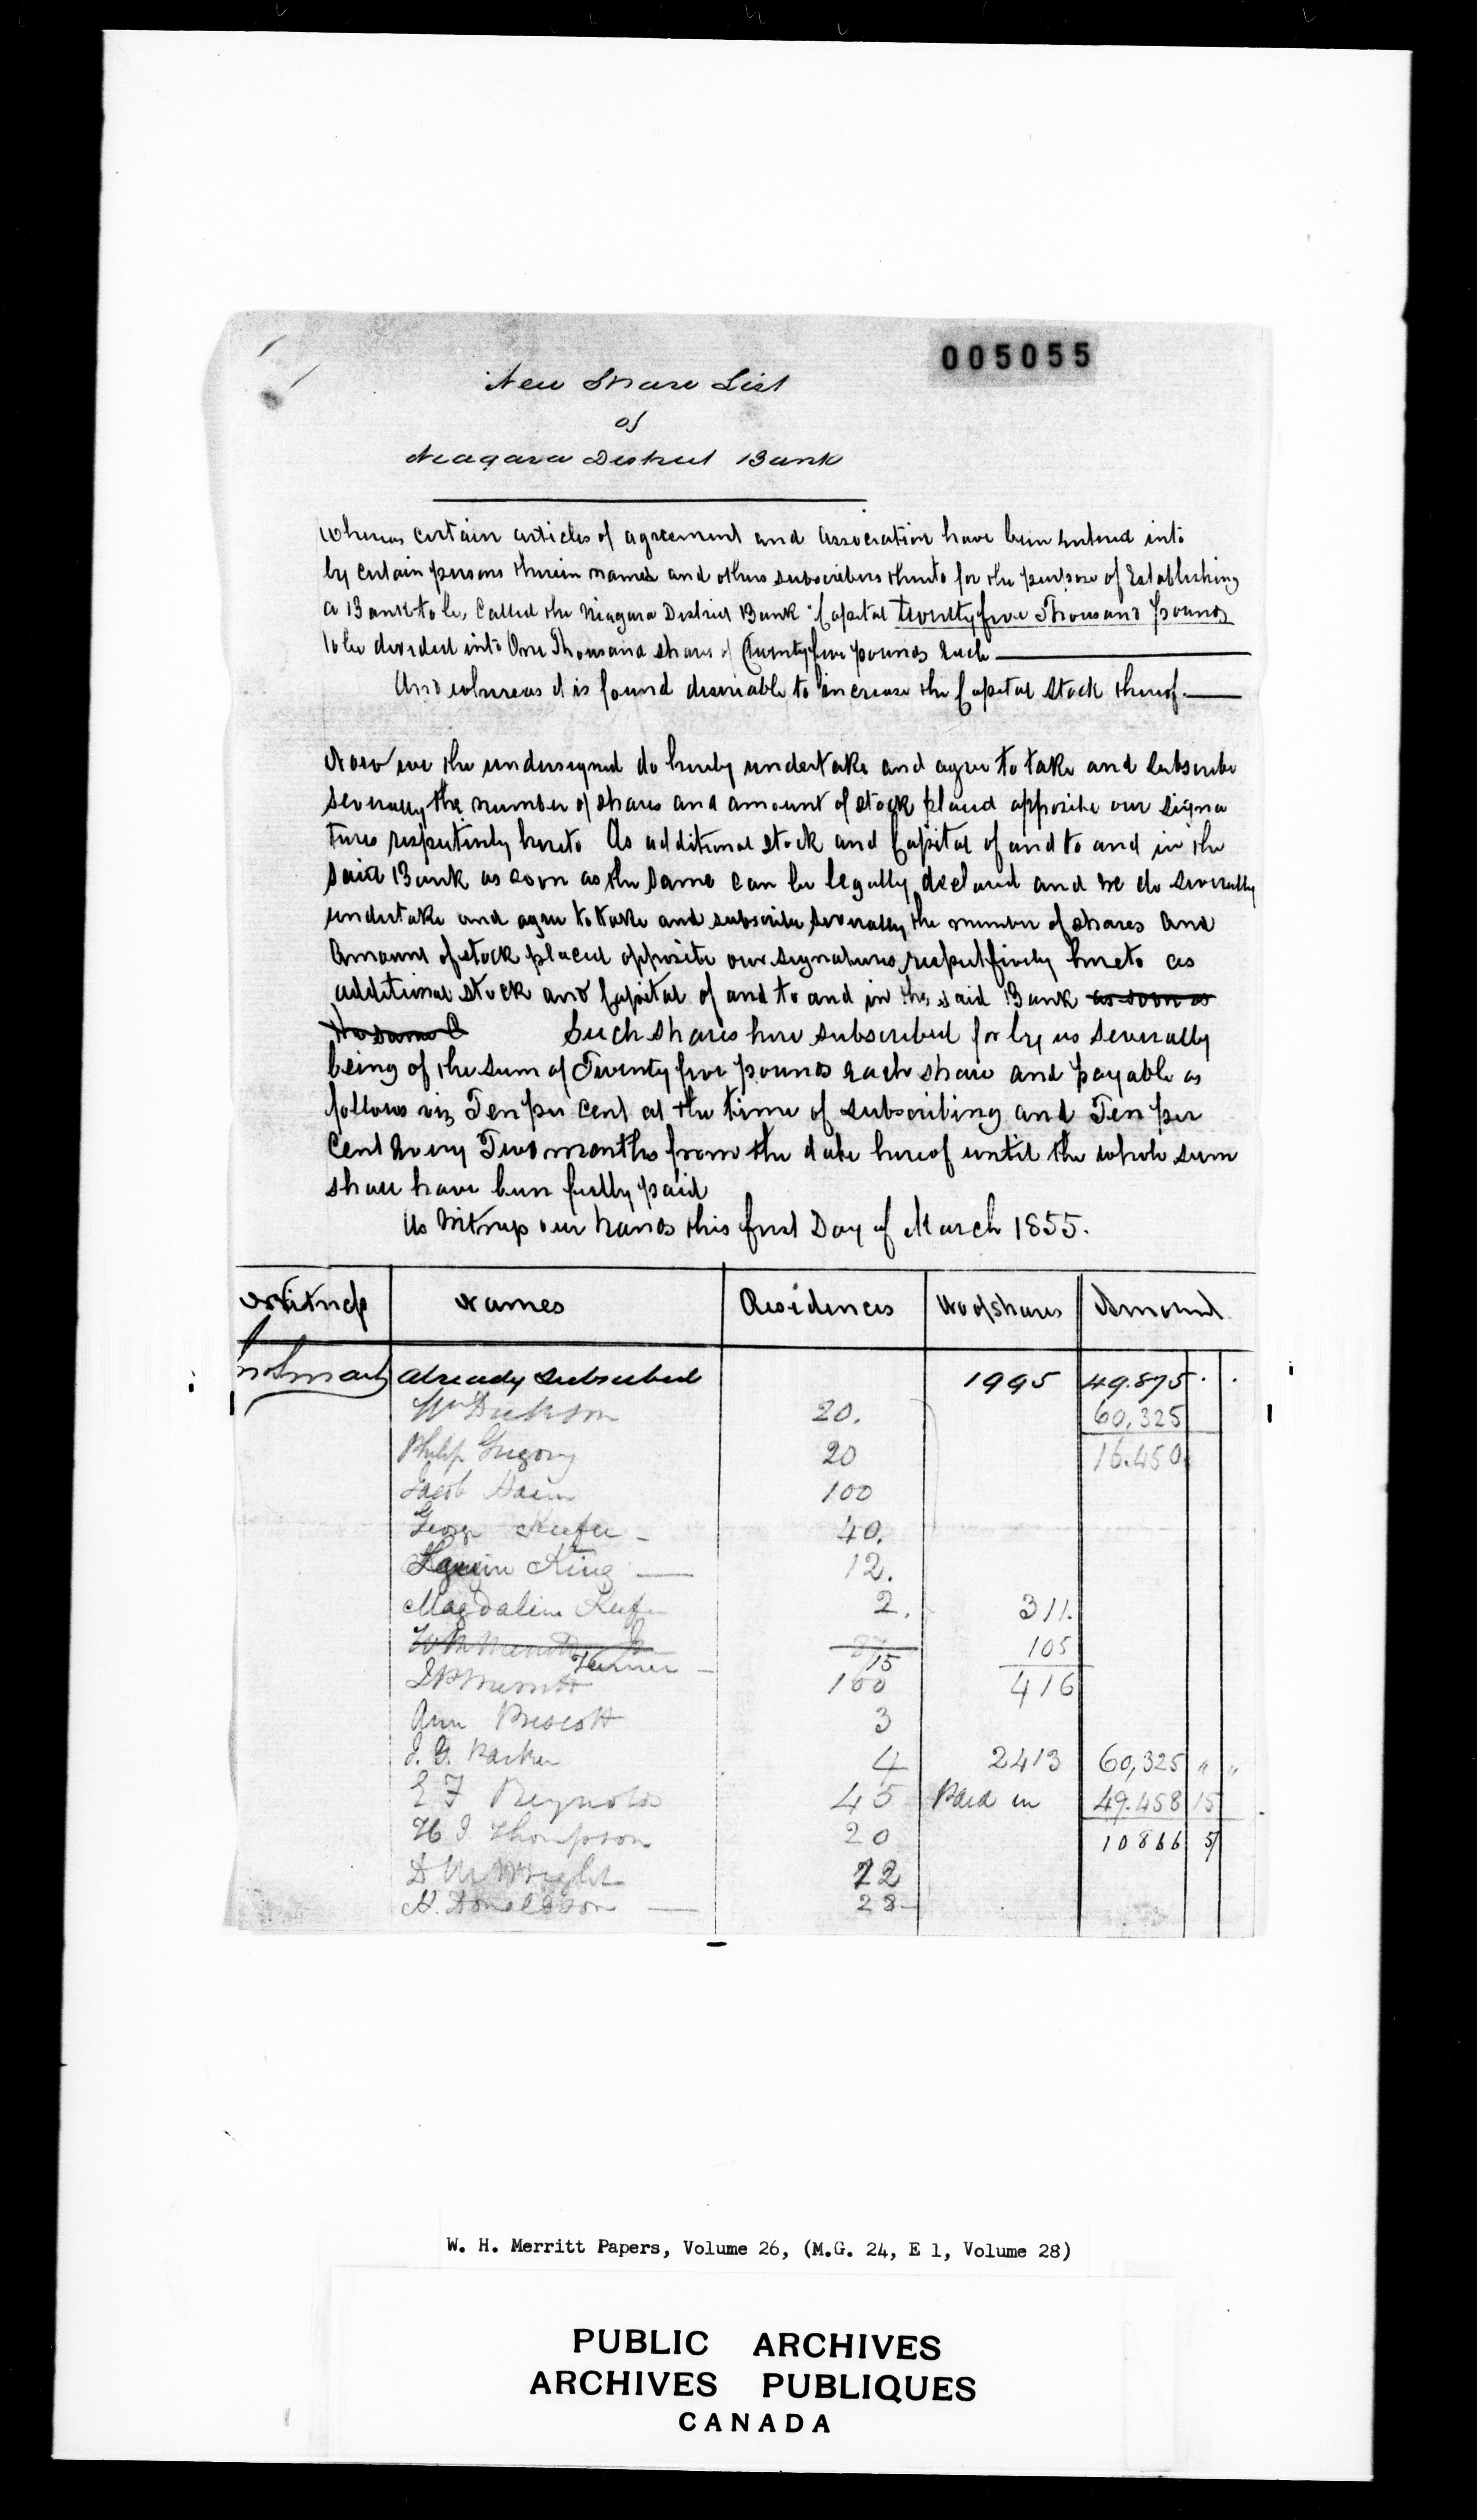 005055
New Share List
of
Niagara District Bank
Whereas certain articles of agreement and association have been entered into
by certain persons therein named and others subscribers thereto for the purpose of Establishing
a Bank to be, Called the Niagara District Bank Capital twenty five Thousand pounds
to be divided into One Thousand shares of Twenty five pounds each
And whereas it is found desireable to increase the Capital Stock thereof.
Now we the undersigned do hereby undertake and agree to take and subscribe
severally the number of shares and amount of stock placed opposite our signa
tures respectively hereto As additional stock and Capital of and to and in the
said Bank as soon as the same can be legally declared and we do severally
undertake and agree to take and subscribe severally the number of shares and
Amount of stock placed opposite our signatures respectfively hereto as
additional stock and Capital of and to and in the said Bank as soon as
the same C Such shares here subscribed for by us severally
being of the sum of Twenty five pounds each share and payable as
follows viz Ten per Cent at the time of subscribing and Ten per
Cent every Two months from the date hereof until the whole sum
shall have been fully paid
As Witness our hands this first Day of March 1855.
Witness Names Residences No of shares Amount
Already Subscribed 1995 49.875
Wm Dickson 20. 60,325
Philip Gregory 20 16.450
Jacob 100
George Keefer 40.
King 12.
Magdalin Keefer 2. 311.
W H Merritt Jr 105
Turner 15
J P Merritt 100 416
Ann Prescott 3
J. G. Parker 4 2413 60,325 " "
E F Reynolds 45 Paid in 49.458 15
H I Thompson 20 10866 5
D Wright 22
A. Donaldson 28
W. H. Merritt Papers, Volume 26, (M.G. 24, E 1, Volume 28)
PUBLIC ARCHIVES
ARCHIVES PUBLIQUES
CANADA